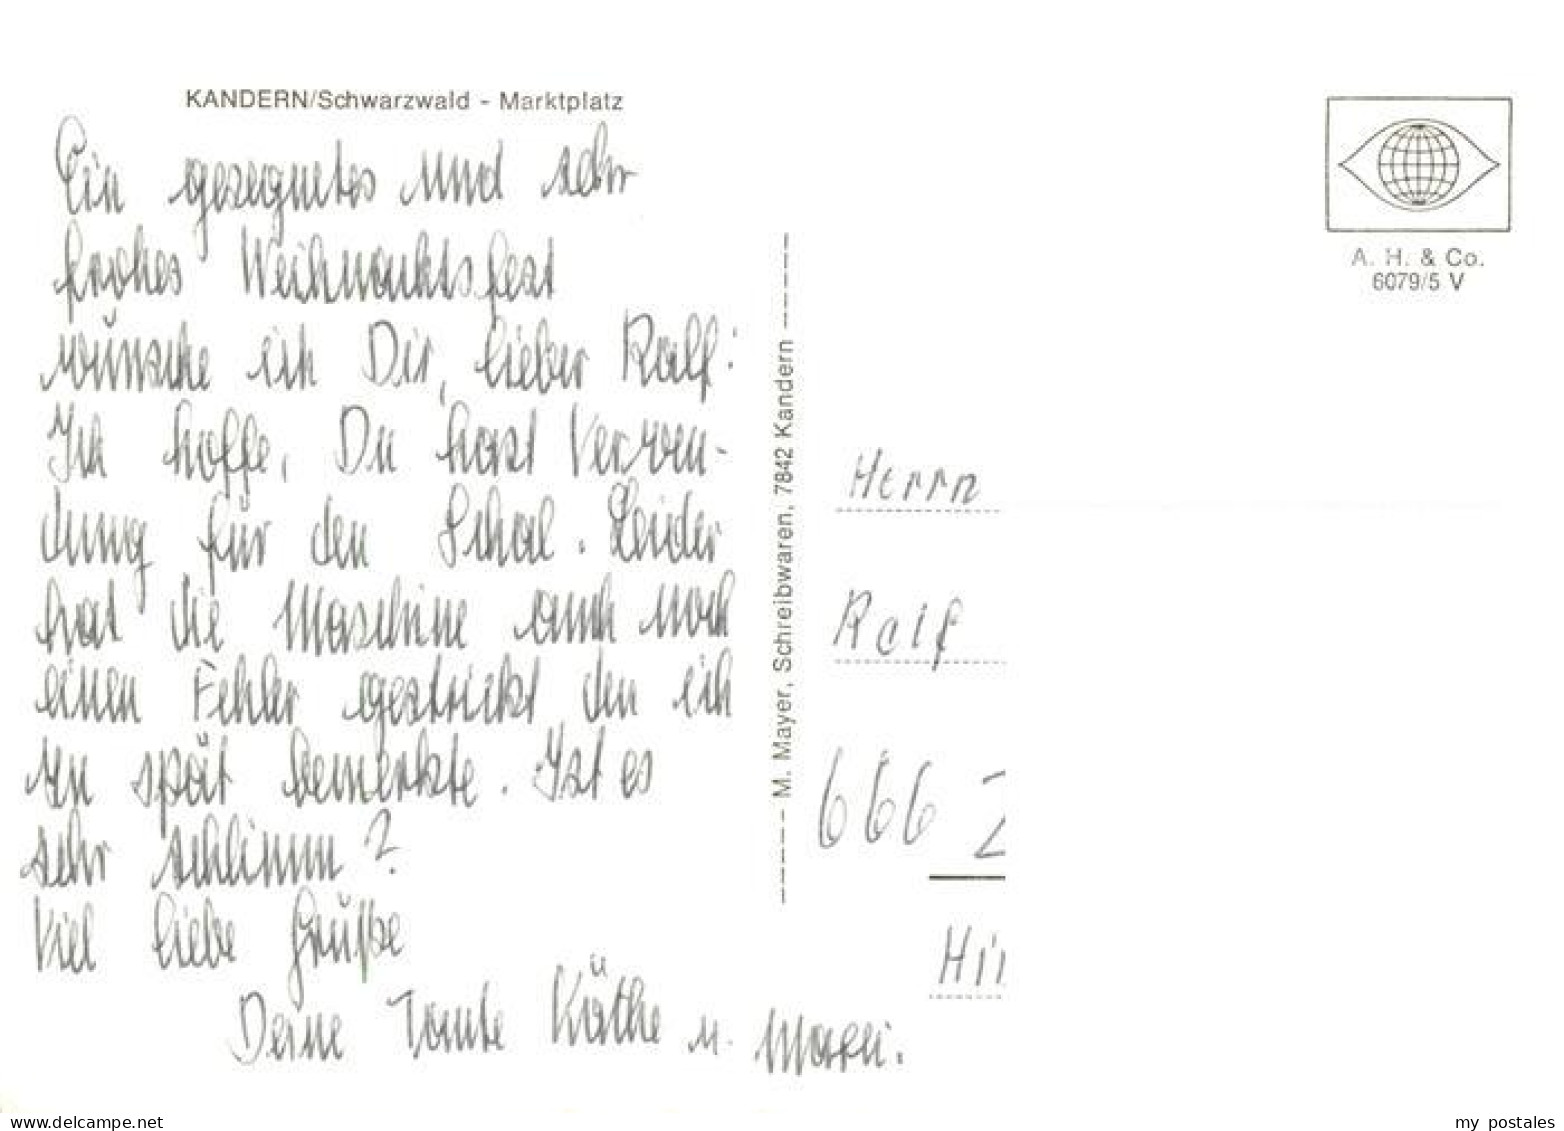 KANDERN/Schwarzwald - Marktplatz
Ein gesegnetes und sehr
frohes Weihnachtsfest
wünsche ich Dir, lieber Ralf!
Ich hoffe, Du hast Verwen-
dung für den Schal. Leider
hat die Maschine auch noch
einen Fehler gestrickt den ich
zu spät bemerkte. Ist es
sehr schlimm?
Viel liebe Grüße
Deine Tante Käthe u.
M. Mayer, Schreibwaren, 7842 Kandern
A. H. & Co.
6079/5 V
Herrn
Ralf
666
delcampe.net
my_postales